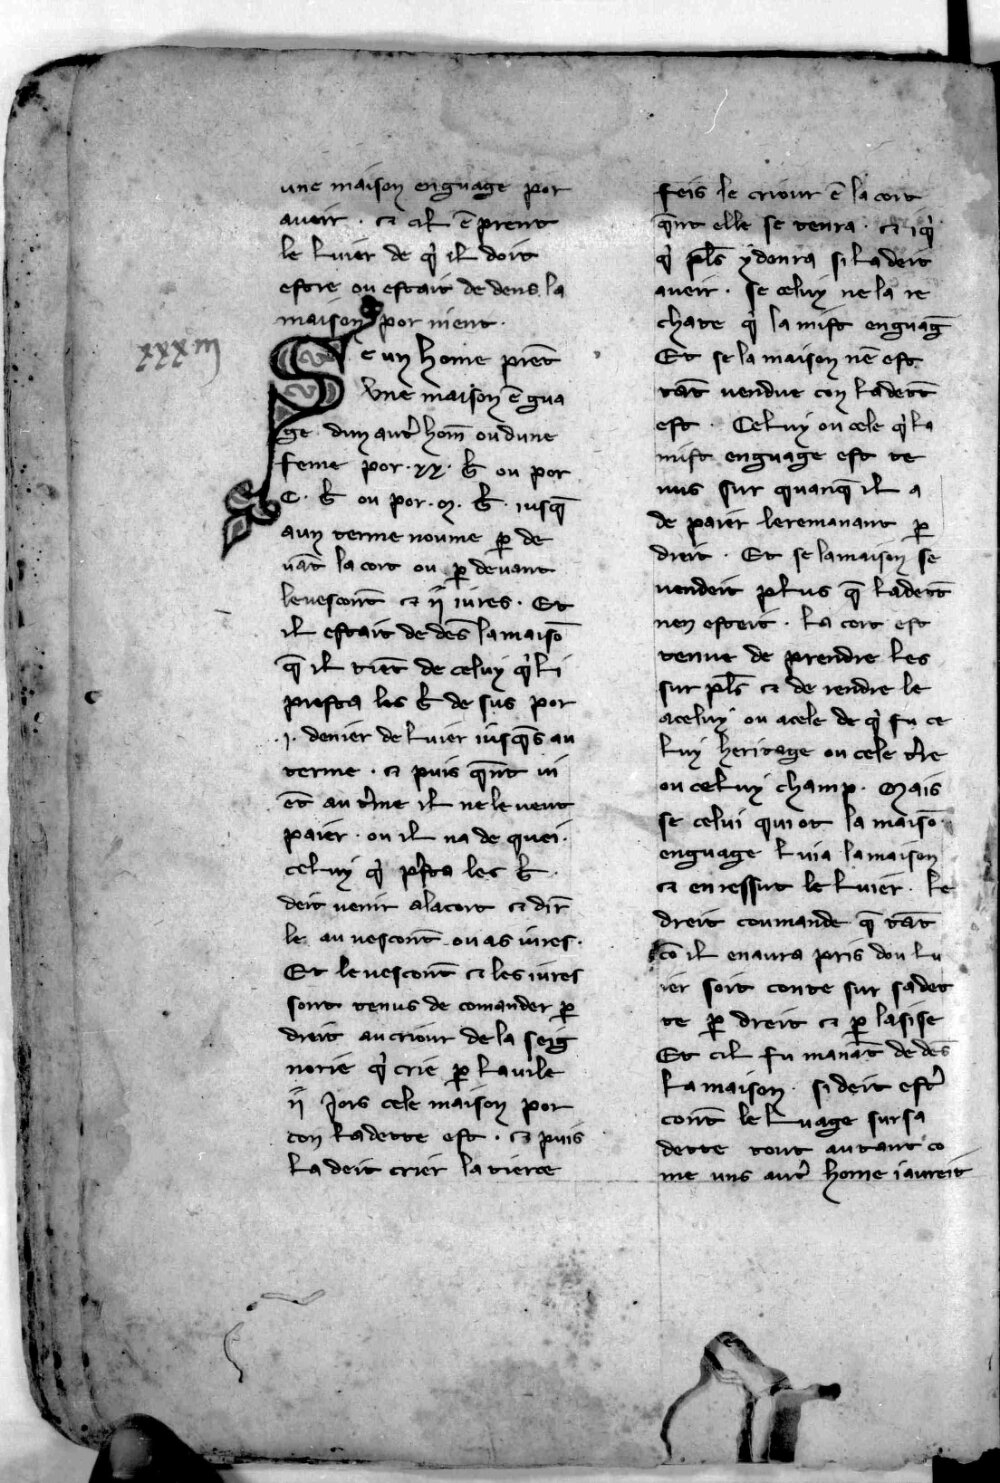 une maison enguage por
aueir · ⁊ cil ē prent
le luier de q̇ il doit
estre ou estait de dens la
maison por nient ·
xxxiii
Se un home prēt
vne maison ē gua
ge dun autr̾ hom̄ ou dune
feme por · xx · b̄ ou por
C · b̄ ou por · m · b̄ · iusq̄
aun terme noume ꝑ de
uāt la cort ou ꝑ deuant
leuescont̄ ⁊ ii iures · Et
il estait de dēs lamaisō
q̄ il tiēt de celuy q̇ li
presta les b̄ de sus por
· i · denier de luier iusq̄s au
terme · ⁊ puis q̄nt ui
ēt au t̾me il ne le ueut
paier · ou il na de quei ·
celuy q̇ p̾sta les b̄ ·
deit uenir alacort ⁊ dir̄
le au uescont̄ ou as iures ·
Et le uescont̄ ⁊ les iures
sont tenus de comander ꝑ
dreit au criour de la seig
norie q̇ crie ꝑ la uile
ii Jors cele maison por
con ladette est · ⁊ puis
la deit crier la tierce
feis le criour ē la cort
q̄nt elle se tenra · ⁊ iq̇
q̇ pl̄s y donra si la deit
aueir · se celuy ne la re
chate q̇ la mist enguaḡ
Et se la maison nē est
tāt uendue con ladett̄
est · Celuy ou cele q̇ la
mist enguage est te
nus sur quanq̄ il a
de paier leremanant ꝑ
dreit · Et se lamaison se
uendeit plus q̄ ladett̄
nen esteit · la cort est
tenue de prendre les
sur pl̄s ⁊ de rendre le
aceluy ou acele de q̇ fu ce
luy heritage ou cele t̾re
ou celuy champ · Mais
se celui qui ot la maisō
enguage luia lamaison
⁊ en ressut le luier · le
dreit coumande q̄ tāt
cō il enaura pris dou lu
ier soit conte sur sadet
te ꝑ dreit ⁊ ꝑ lasise
Et cil fu manāt de dēs
la maison · si deit estr̾
cont̄ le luage sur sa
dette tout autant co
me uns autr̾ home i aureit